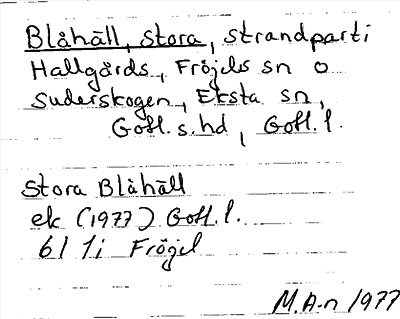 Blåhäll, stora, strandparti
Hallgårds, Fröjels sn o
Suderskogen, Eksta sn,
Gotl. s. hd, Gotl. l.
Stora Blåhäll
ek (1977) Gotl. l.
6I 1i Fröjel
M.A-n 1977